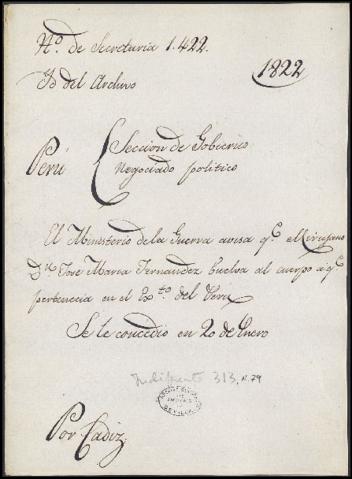 Nº. de Secretaria 1.422.
1822
Yd del Archivo
Perú
Seccion de Gobierno
Negociado politico
El Ministerio de la Guerra avisa qe. el Cirujano
Dn. José Maria Fernandez buelva al cuerpo á qe.
pertenecia en el Exto. del Perú
Se le concedio en 20 de Enero
Indiferente 313, N.79
SEVILLA
Por Cadiz.